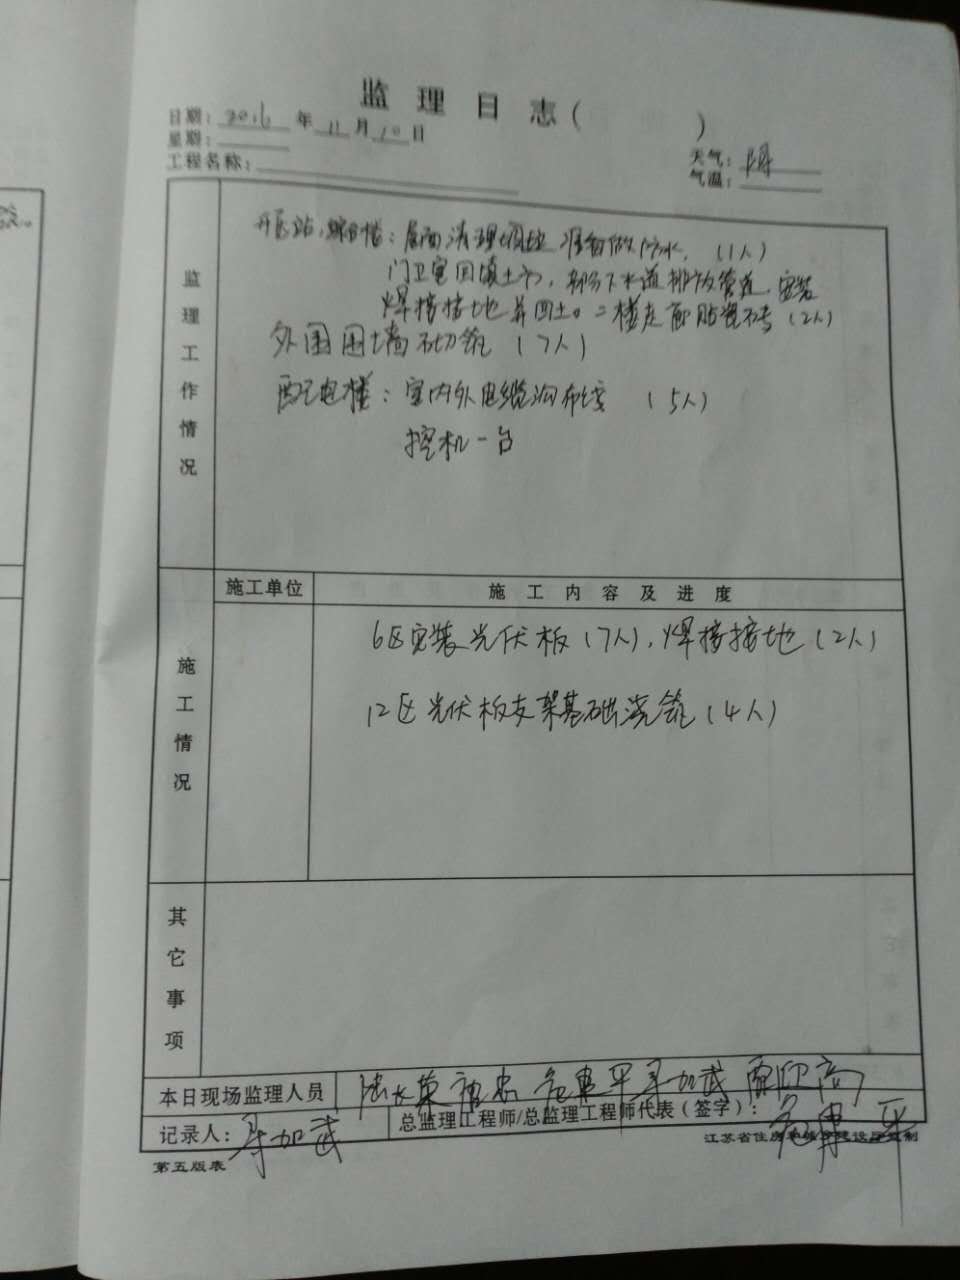 监理日志( )
日期：2016年11月10日
星期：
天气：阴
工程名称：
气温：
监理工作情况
站，综合楼：屋面清理 准备做防水，(1人)
门卫室回填土方，部分下水道排放管道，安装
焊接接地并回土。二楼走廊贴瓷砖(2人)
外围围墙砌筑 (7人)
配电楼：室内外电缆沟布线 (5人)
挖机一台
施工情况
施工单位 施工内容及进度
6区安装光伏板(7人)，焊接接地(2人)
12区光伏板支架基础浇筑(4人)
其它事项
本日现场监理人员
记录人： 总监理工程师/总监理工程师代表(签字)：
第五版表 江苏省住房和城乡建设厅监制